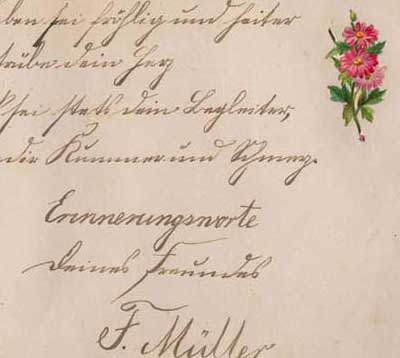 ben sei fröhlig und heiter
trübe dein Herz
sei stets dein Begleiter,
dir Kummer und Schmerz.
Erinnerungsworte
Deines Freundes
F. Müller